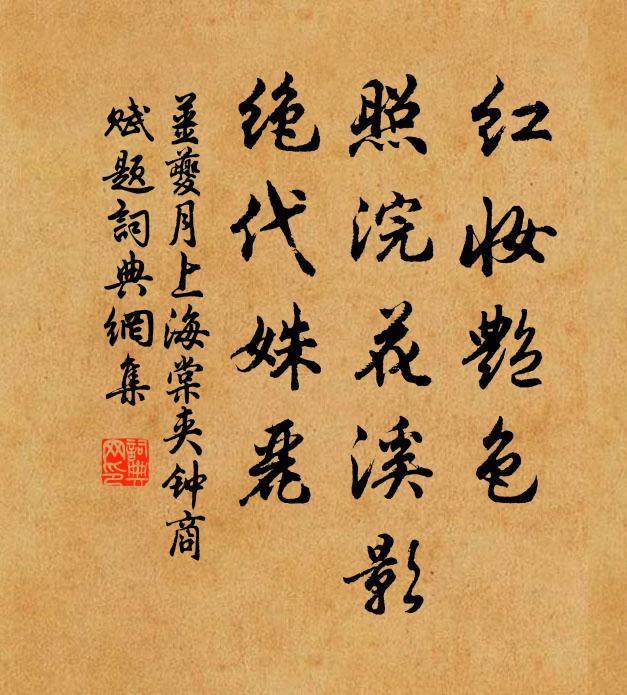 红妆艷色
照浣花溪影
绝代姝丽
薑夔月上海棠夹钟商
赋题詞典網集
詞典网印